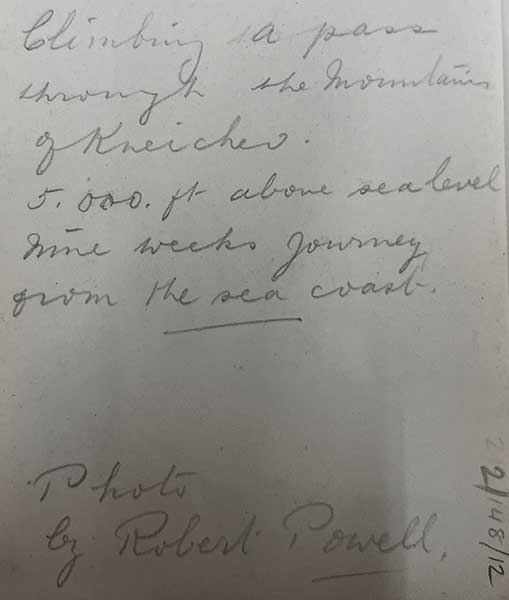 Climbing a pass
through the Mountains
of Kneichev.
5.000. ft above sea level
Nine weeks Journey
from the sea coast.
Photo
by Robert Powell.
2/148/12